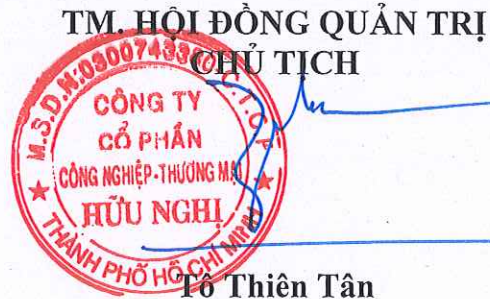 TM. HỘI ĐỒNG QUẢN TRỊ
CHỦ TỊCH
M.S.D.N:0300743350-C.T.C.P
CÔNG TY
CỔ PHẦN
CÔNG NGHIỆP-THƯƠNG MẠI
HỮU NGHỊ
THÀNH PHỐ HỒ CHÍ MINH
Tô Thiên Tân